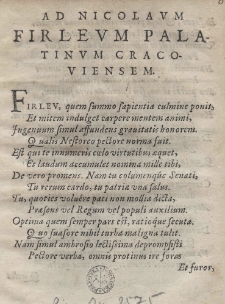 AD NICOLAVM
FIRLEVM PALA-
TINVM CRACO-
VIENSEM.
FIRLEV, quem summo sapientia culmine ponit,
Et mitem indulget carpere mentem animi,
Ingenuum simul assundens grauitatis honorem,
Qualis Nestoreo pectore norma fuit.
Est qui te innumeris cœlo virtutibus æquet,
Et laudum accumulet nomina mille tibi,
De vero promens. Nam tu columenque Senati,
Tu rerum cardo, tu patria vna salus.
Tu, quoties voluêre pati non modia dicta,
Præsens vel Regum vel populi auxilium.
Optima quem semper pars est, ratioque secuta.
Quo suasore nihil turba maligna tulit.
Nam simul ambrosio lectissima deprompsisti
Pectore verba, omnis protinus ire foras
Et furor,